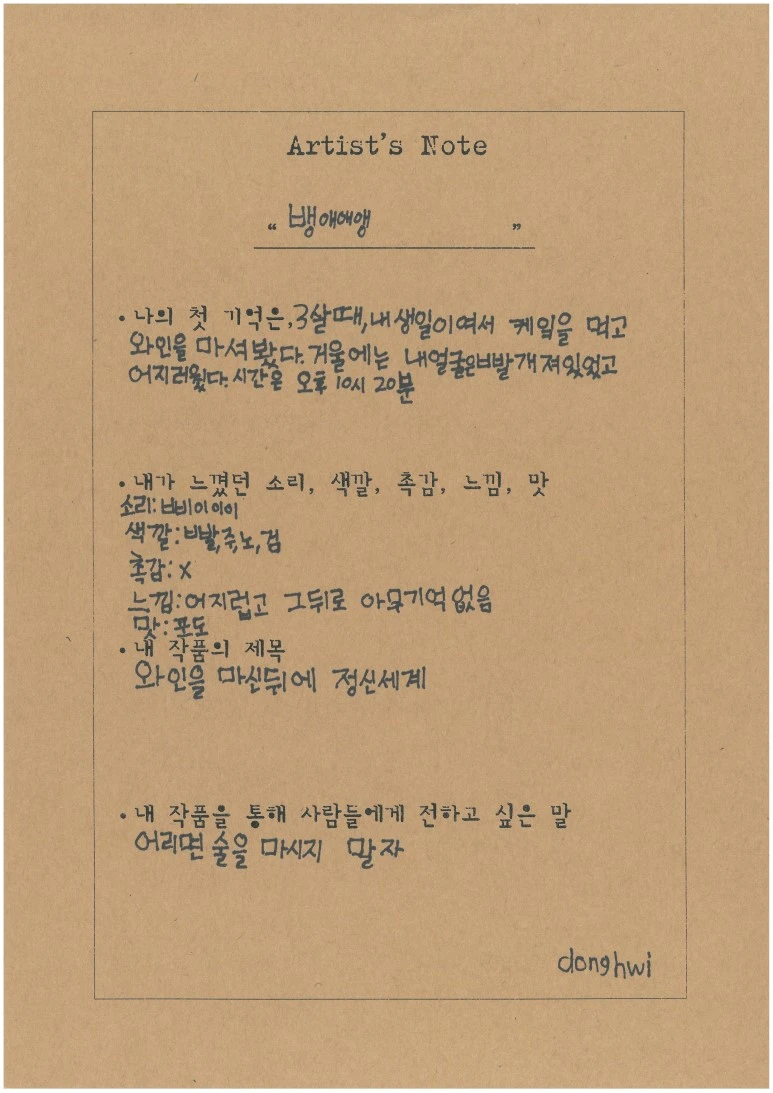 Artist's Note
“뱅애애앵”
• 나의 첫 기억은, 3살때, 내생일이여서 케잌을 먹고
와인을 마셔봤다. 거울에는 내얼굴은빠발개져있었고
어지러웠다. 시간은 오후 10시 20분
• 내가 느꼈던 소리, 색깔, 촉감, 느낌, 맛
소리: 삐이이이
색깔: 빨,주,노,검
촉감: X
느낌: 어지럽고 그뒤로 아무기억없음
맛: 포도
• 내 작품의 제목
와인을 마신뒤에 정신세계
• 내 작품을 통해 사람들에게 전하고 싶은 말
어리면 술을 마시지 말자
donghwi